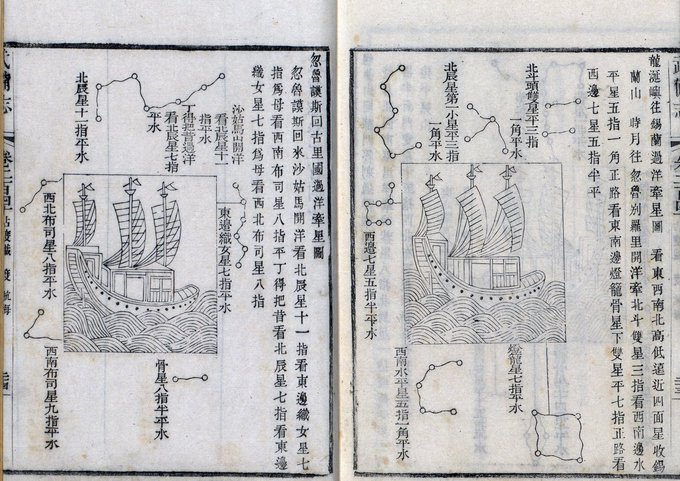 龍涎嶼往錫蘭過洋牽星圖 看東西南北高低遠近四面星收錫
蘭山 時月往忽魯別羅里開洋牽北斗雙星三指看西南邊水
平星五指一角正路看東南邊燈籠骨星下雙星平七指正路看
西邊七星五指半平
北斗頭雙星平三指
一角平水
北辰星第一小星平三指
一角平水
西邊七星五指半平水
燈籠星七指平水
西南水平星五指一角平水
忽魯謨斯回古里國過洋牽星圖
忽魯謨斯回來沙姑馬開洋看北辰星十一指看東邊織女星七
指爲母看西南布司星八指平丁得把昔看北辰星七指看東邊
織女星七指爲母看西北布司星八指
沙姑馬山開洋
看北辰星十一
指平水
丁得把昔過洋
看北辰星七指
平水
北辰星十一指平水
東邊織女星七指平水
西北布司星八指平水
骨星八指半平水
西南布司星九指平水
武備志